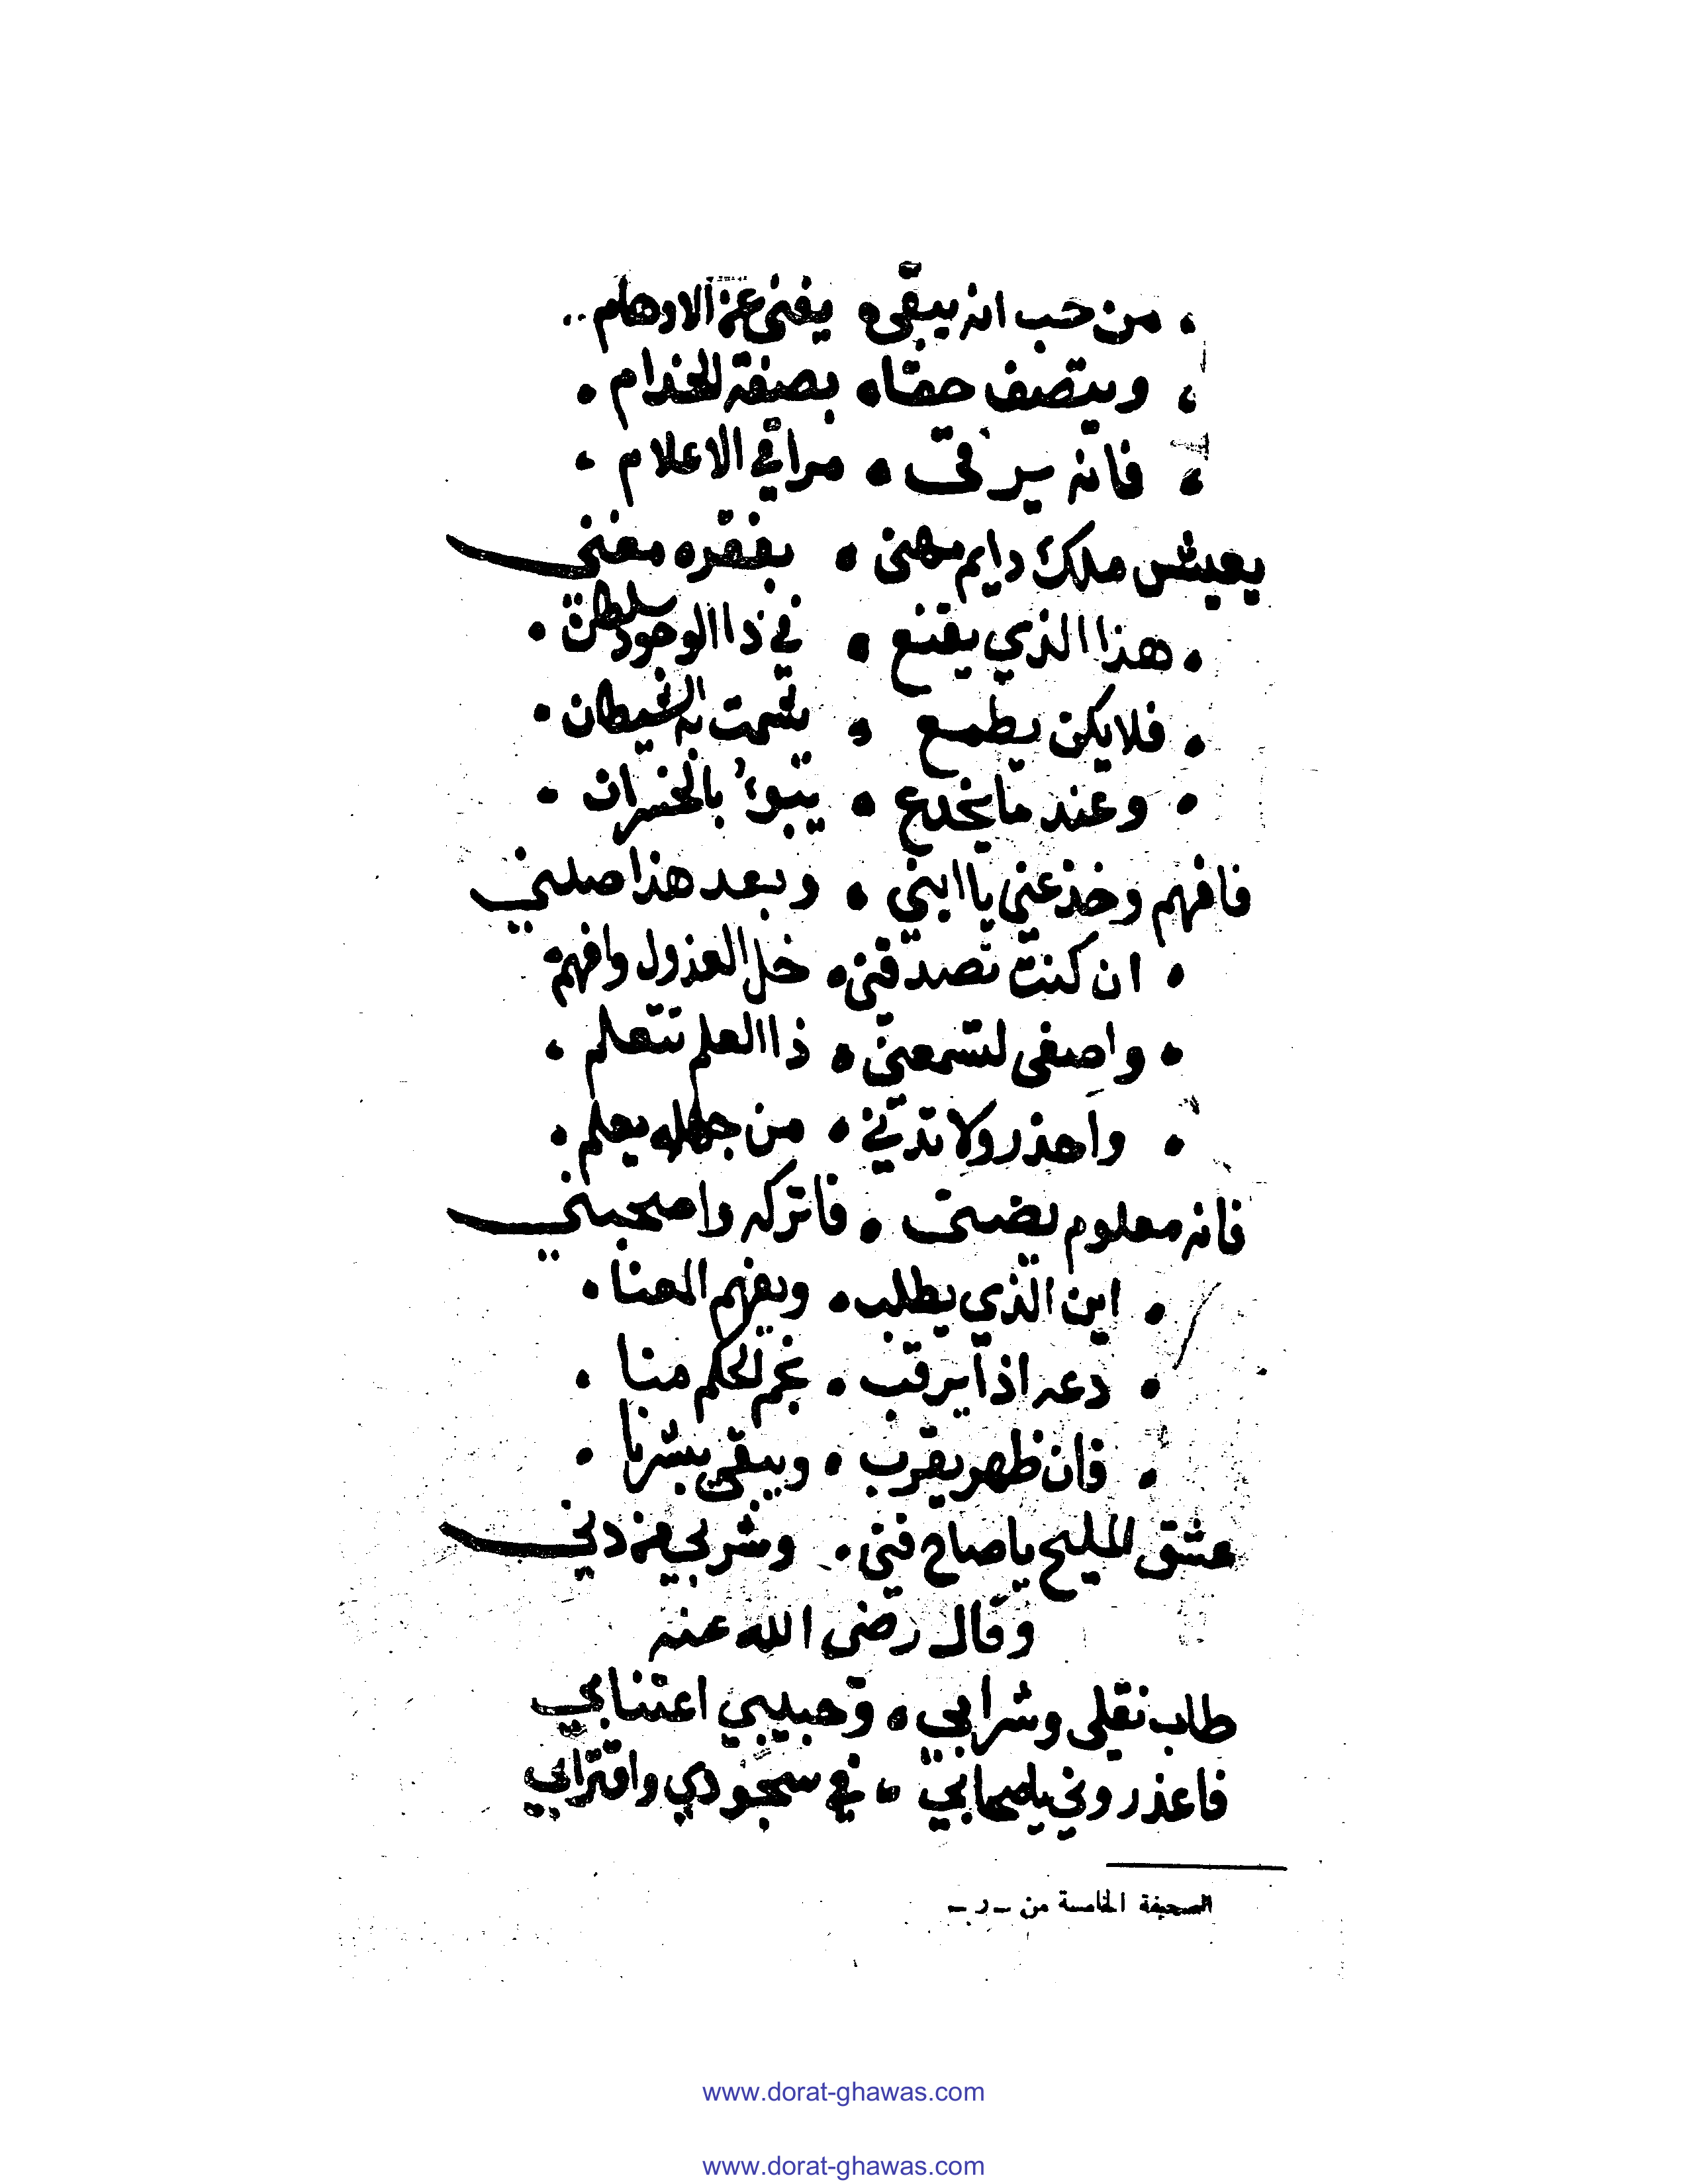 من حب انه يبقى • يفنى عن الاوهام
ويتصف حقا • بصفة الخدام •
فانه يرقى • مراقي الاعلام •
يعيش ملك دايم مهنى • بفقره مغني
• هذا الذي يقنع • في ذا الوجود سلطان •
• فلا يكن يطمع • يشمت به الشيطان •
• وعند ما يخدع • يتبوء بالخسران •
فافهم وخذ عني يا ابني • وبعد هذا صلني
• ان كنت تصدقني • خل العذول وافهم
• واصغى لتسمعني • ذا العلم تتعلم •
• واحذر ولا تدني • من جهله يعلم •
فانه معلوم يضني • فاتركه واصحبني
• اين الذي يطلب • ويفهم المعنا •
• دعه اذا يرقب • نجم الحكم منا •
• فان ظهر يقرب • ويبقى بشرنا •
عشق المليح يا صاح فني • وشربي من دني
وقال رضى الله عنه
طاب نقلى وشرابي • وحبيبي اعتنابي
فاعذروني يا صحابي • في سجودي واقترابي
الصحيفة الخامسة من - ر -
www.dorat-ghawas.com
www.dorat-ghawas.com